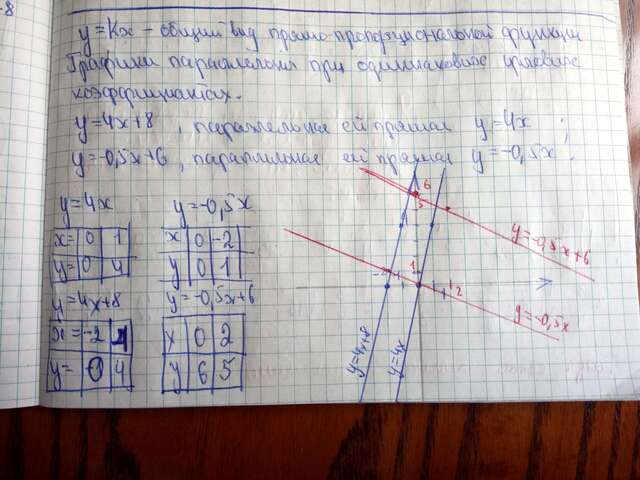 8
y=kx - общий вид прямо-пропорциональной функции
Графики параллельны при одинаковых угловых
коэффициентах.
y=4x+8, параллельная ей прямая y=4x;
y=0,5x+6, параллельная ей прямая y=-0,5x.
y=4x
x= 0 1
y= 0 4
y=-0,5x
x 0 -2
y 0 1
y=4x+8
x= -2 -1
y= 0 4
y=-0,5x+6
x 0 2
y 6 5
y=4x+8
y=4x
-2
1
2
5
6
y=-0,5x
y=-0,5x+6